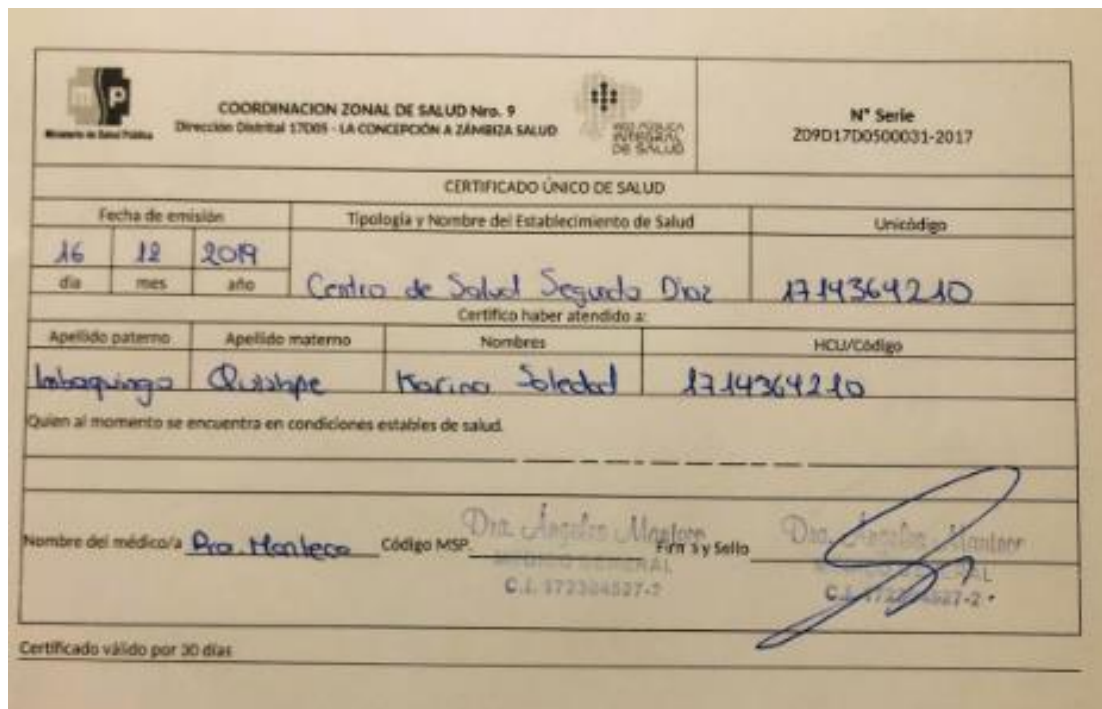 mp
Ministerio de Salud Pública
COORDINACION ZONAL DE SALUD Nro. 9
Dirección Distrital 17D05 - LA CONCEPCIÓN A ZÁMBIZA SALUD
RED PÚBLICA
INTEGRAL
DE SALUD
N° Serie
Z09D17D0500031-2017
CERTIFICADO ÚNICO DE SALUD
Fecha de emisión
Tipología y Nombre del Establecimiento de Salud
Unicódigo
16 12 2019
día mes año
Centro de Salud Segundo Diaz
1714364210
Certifico haber atendido a:
Apellido paterno Apellido materno Nombres HCU/Código
Imbaquingo Quishpe Karina Soledad 1714364210
Quien al momento se encuentra en condiciones estables de salud.
Nombre del médico/a Dra. Manteca Código MSP Firma y Sello
Dra. Ángeles
MÉDICO GENERAL
C.I. 172304527-2
Dra. Ángeles
MÉDICO GENERAL
C.I. 172304527-2
Certificado válido por 30 días